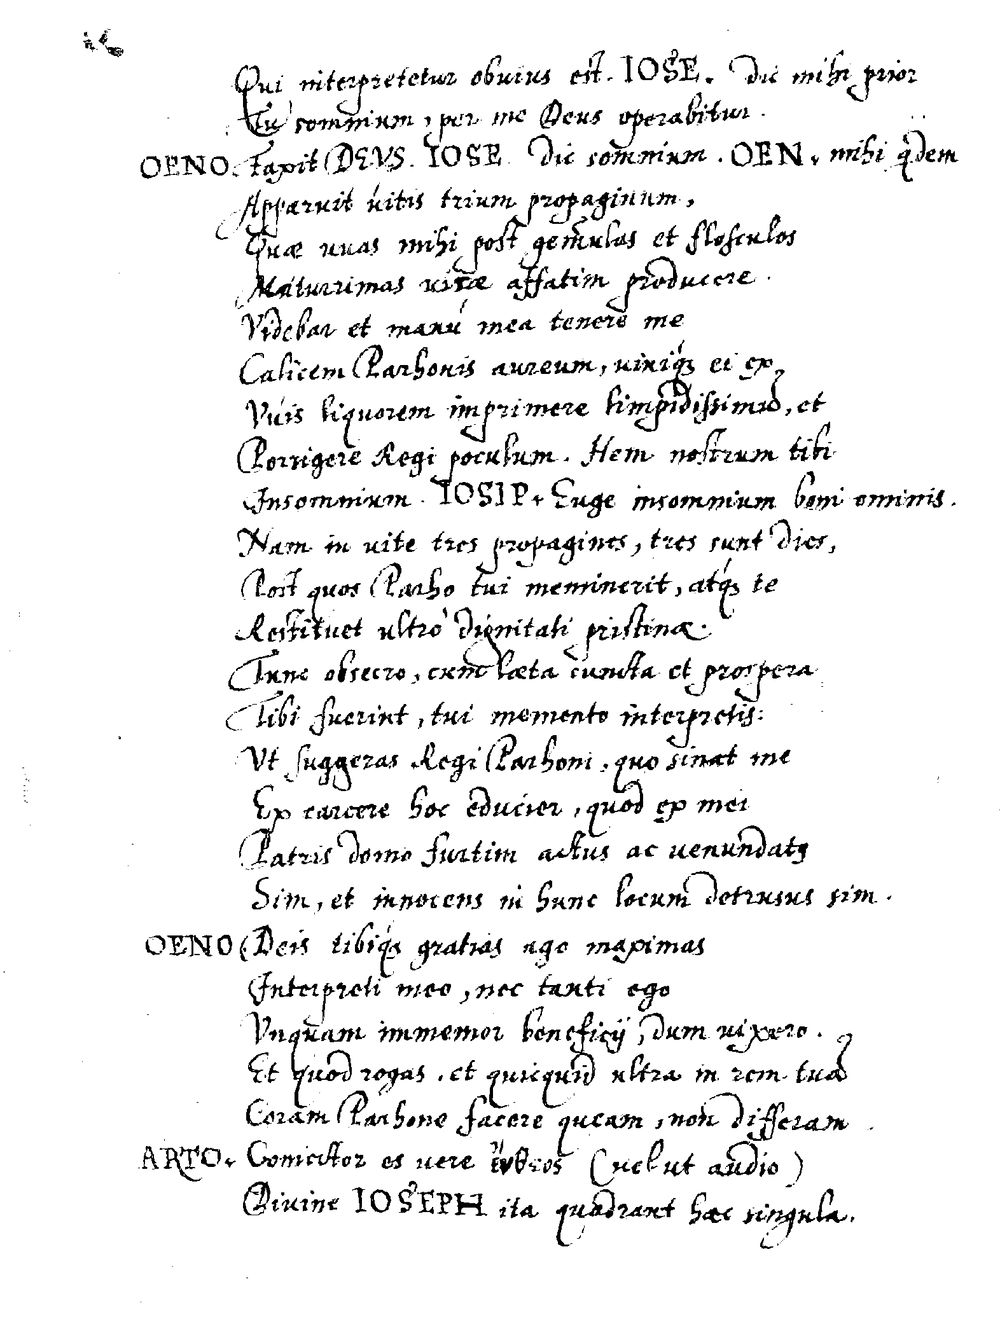 Qui interpretetur obuius est. IOSE. Dic mihi prior
Tu somnium, per me Deus operabitur.
OENO. Faxit DEVS. IOSE Dic somnium. OEN. mihi q̃dem
Apparuit uitis trium propaginum,
Quæ uuas mihi post gem̃ulas et flosculos
Maturrimas affatim producere.
Videbar et manu mea tenere me
Calicem Parhonis aureum, uiniq́ꝫ ei ex
Vuis liquorem imprimere limpidissimũ, et
Porrigere Regi poculum. Hem nostrum tibi
Insomnium. IOSIP. Euge insomnium boni ominis.
Nam in uite tres propagines, tres sunt dies,
Post quos Parho tui meminerit, atq́ꝫ te
Restituet ultrò dignitati pristinæ.
Tunc obsecro, cum læta cuncta et prospera
Tibi fuerint, tui memento interpretis:
Vt suggeras Regi Parhoni, quo sinat me
Ex carcere hoc educier, quod ex mei
Patris domo furtim actus ac uenundatꝰ
Sim, et innocens in hunc locum detrusus sim.
OENO Deis tibiq́ꝫ gratias ago maximas
Interpreti meo, nec tanti ego
Vnquam immemor beneficij, dum uixero.
Et quod rogas, et quicquid ultra in rem tuã
Coram Parhone facere queam, non differam
ARTO. Coniector es uere (uel ut audio)
Diuine IOSEPH ita quadrant hæc singula.